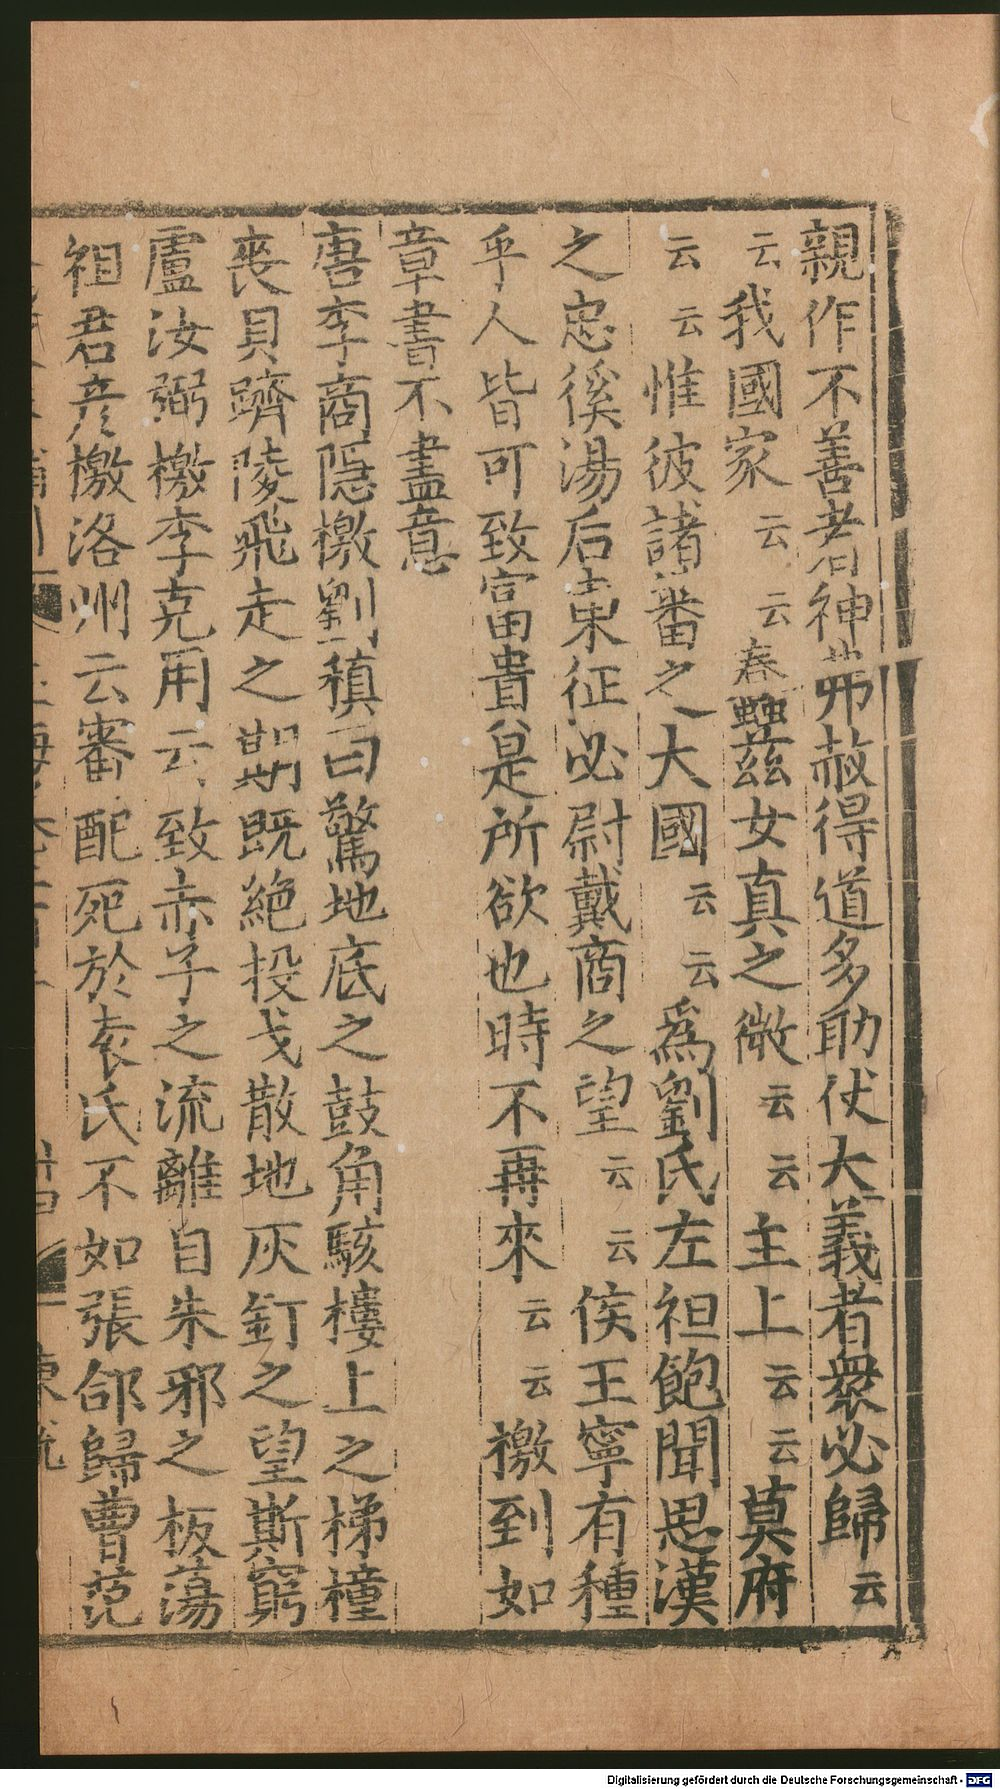 親作不善者神弗赦得道多助伏大義者衆必歸云
云我國家云云春蠶茲女真之微云云主上云云莫府
云云惟彼諸番之大國云云爲劉氏左袒飽聞思漢
之忠徯湯后東征必尉戴商之望云云侯王寧有種
乎人皆可致富貴是所欲也時不再來云云檄到如
章書不盡意
唐李商隱檄劉稹曰驚地底之鼓角駭樓上之梯橦
喪貝躋陵飛走之期既絶投戈散地灰釘之望斯窮
盧汝弼檄李克用云致赤子之流離自朱邪之板蕩
祖君彦檄洛州云審配死於袁氏不如張郃歸曹范
Digitalisierung gefördert durch die Deutsche Forschungsgemeinschaft - DFG